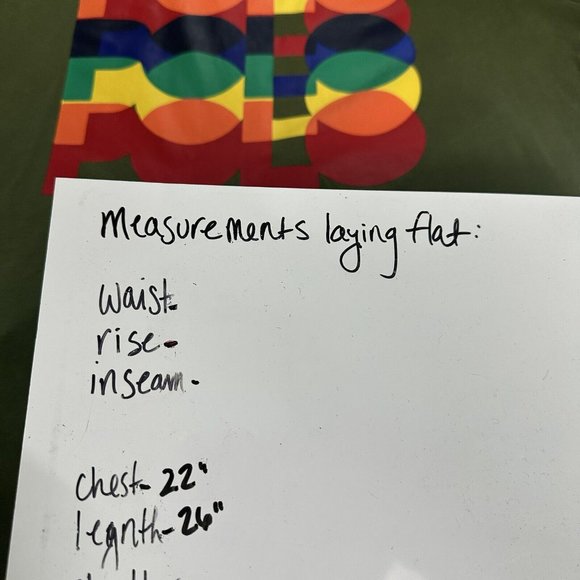 POLO
POLO
Measurements laying flat:
waist-
rise-
inseam-
chest- 22"
legnth- 26"